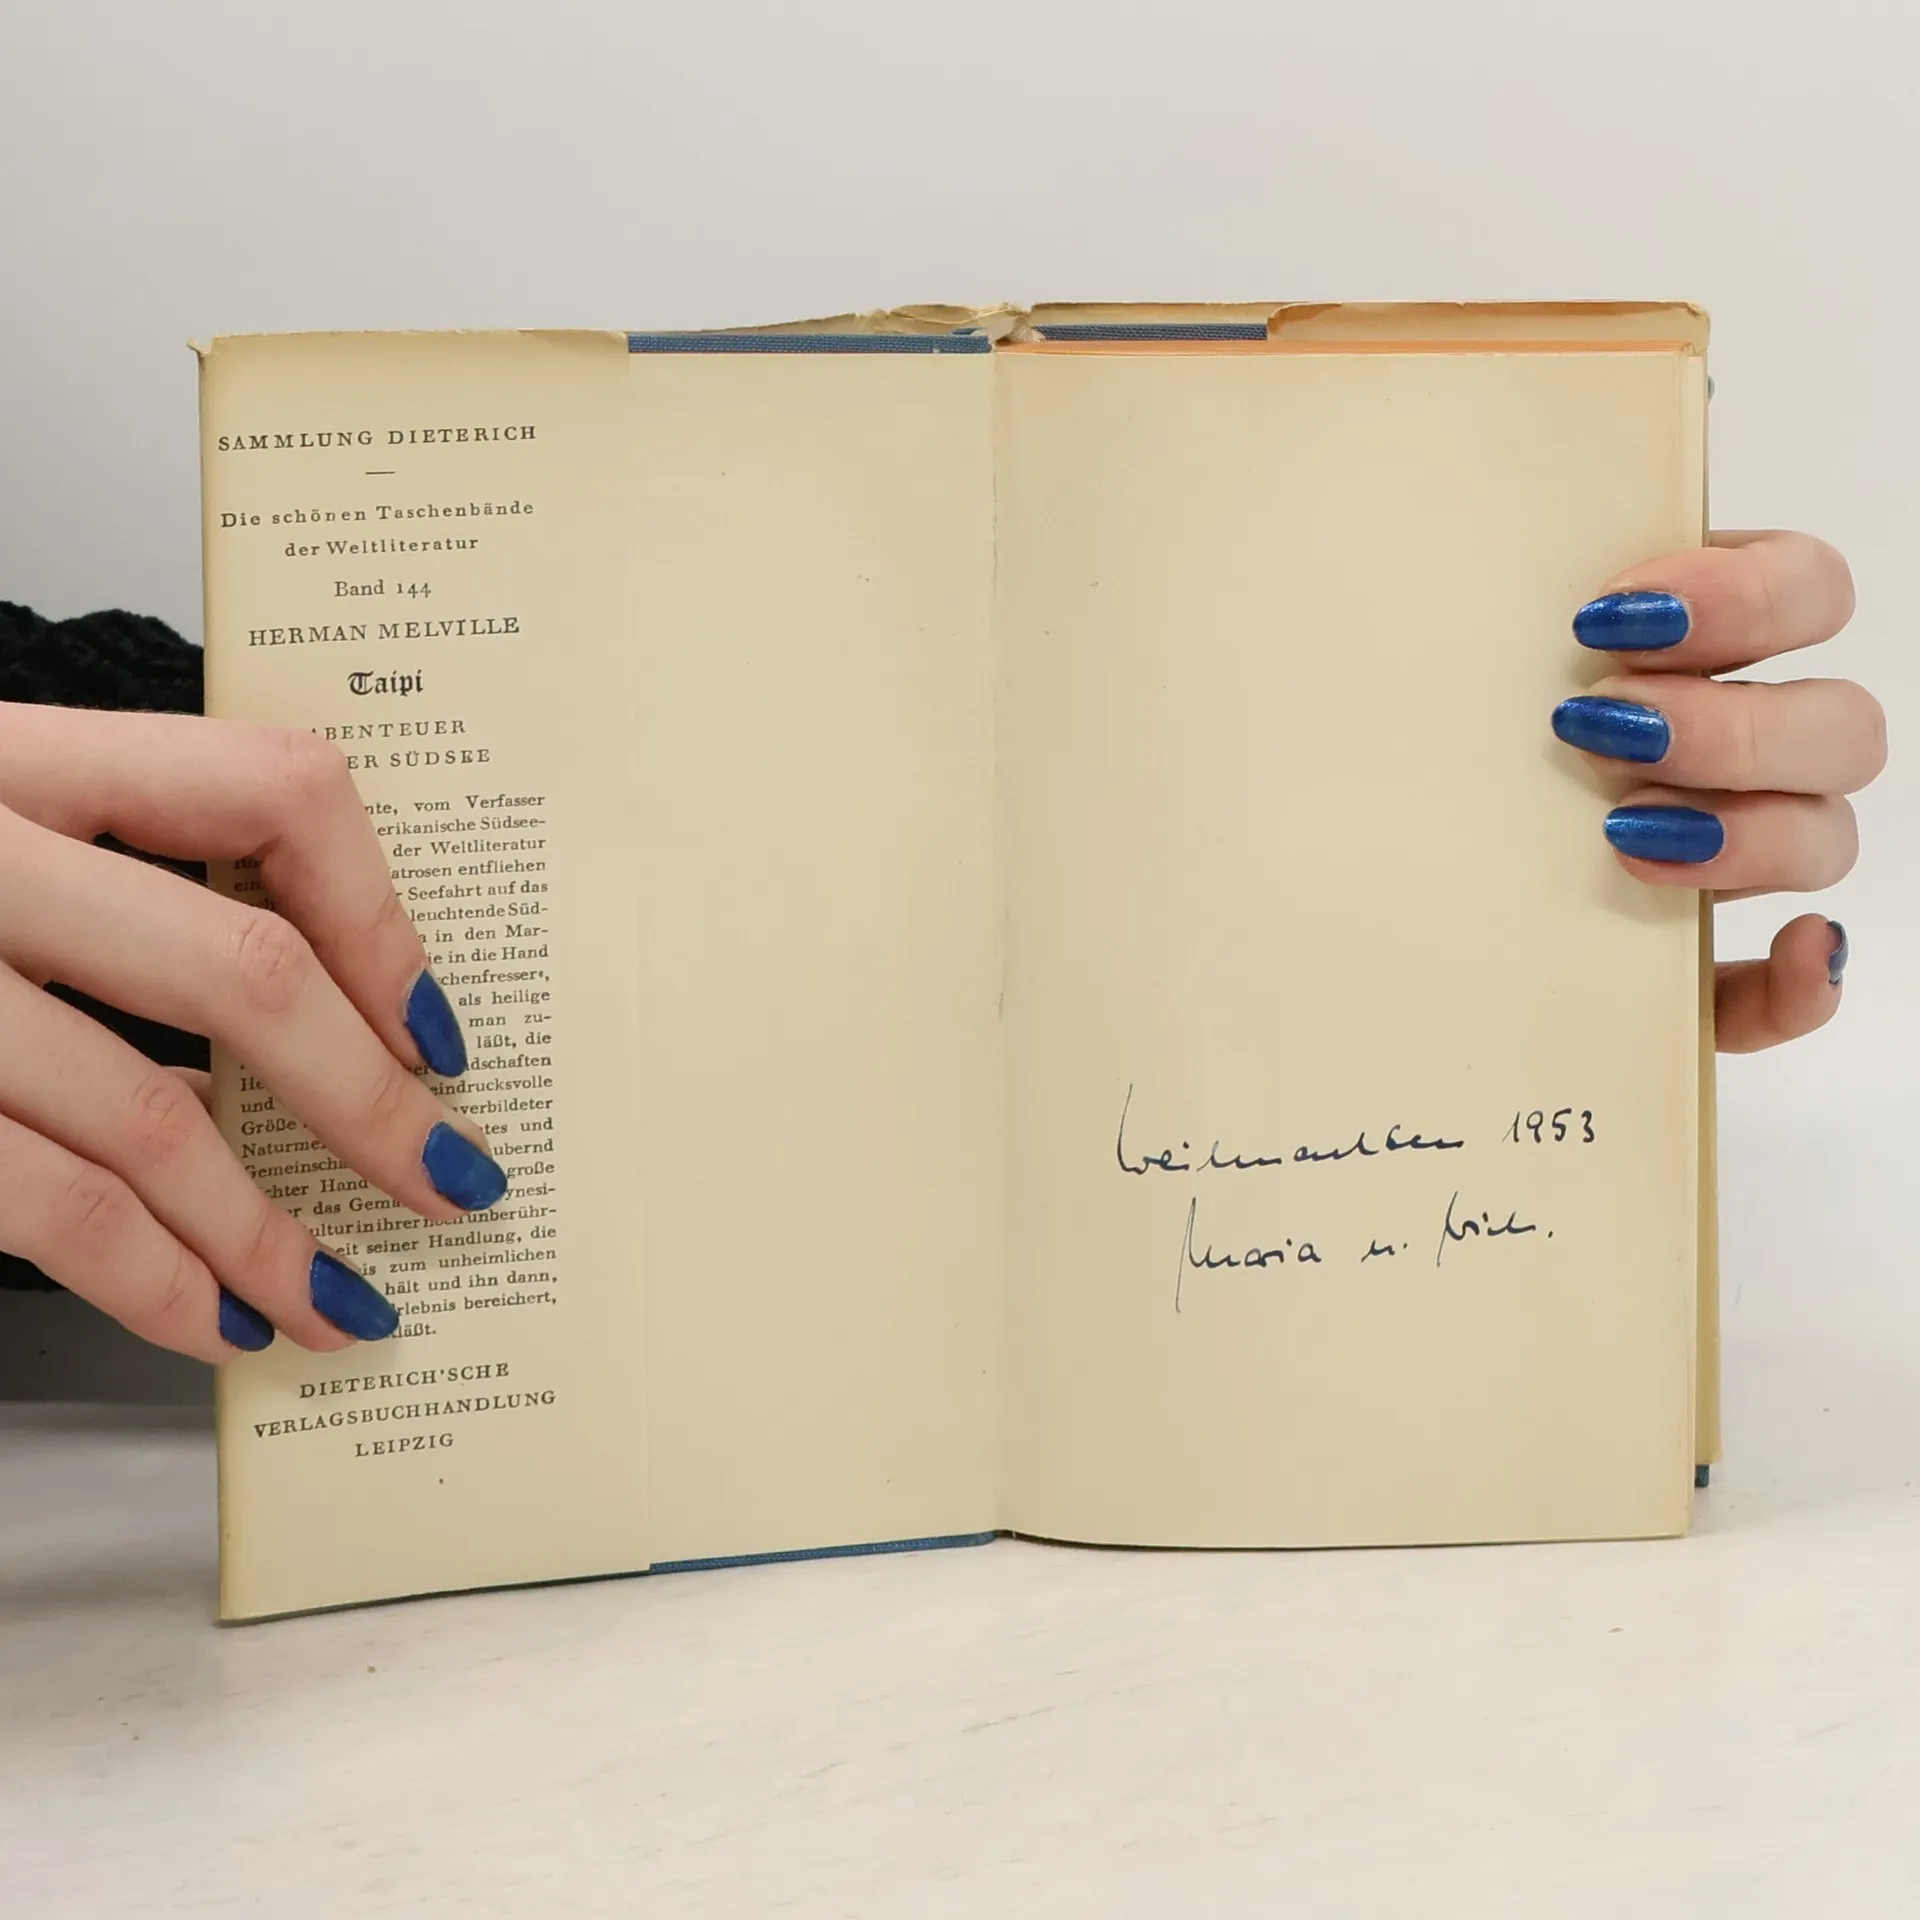 SAMMLUNG DIETERICH
Die schönen Taschenbände
der Weltliteratur
Band 144
HERMAN MELVILLE
Taipi
ABENTEUER
ER SÜDSEE
nte, vom Verfasser
erikanische Südsee-
der Weltliteratur
atrosen entfliehen
ein
r Seefahrt auf das
leuchtende Süd-
in den Mar-
ie in die Hand
schenfresser«,
als heilige
man zu-
läßt, die
dschaften
He eindrucksvolle
und verbildeter
Größe tes und
Naturme ubernd
Gemeinscha große
chter Hand ynesi-
r das Gem
ultur in ihrer noch unberühr-
eit seiner Handlung, die
is zum unheimlichen
hält und ihn dann,
rlebnis bereichert,
läßt.
DIETERICH'SCHE
VERLAGSBUCHHANDLUNG
LEIPZIG
Weihnachten 1953
Maria u.